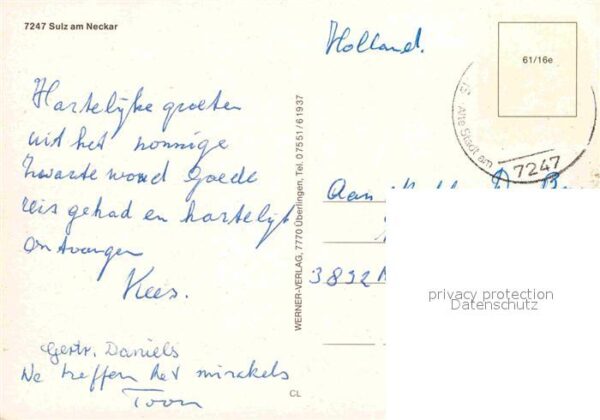 7247 Sulz am Neckar
Hartelijke groeten
uit het zonnige
Zwarte woud Goede
reis gehad en hartelijk
ontvangen
Kees.
Gertr. Daniels
We treffen het mirakels
Toon
CL
WERNER-VERLAG, 7770 Überlingen, Tel. 07551/61937
Holland.
61/16e
Alte Stadt am
7247
Aan
3832
privacy protection
Datenschutz